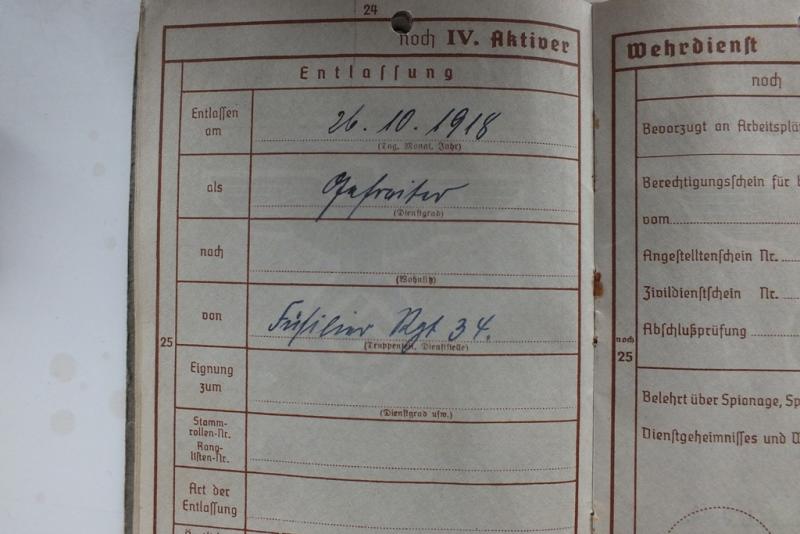 24
noch IV. Aktiver
Entlassung
Entlassen am
26. 10. 1918
(Tag, Monat, Jahr)
als
Gefreiter
(Dienstgrad)
nach
(Wohnsitz)
25
von
Füsilier Rgt 34.
(Truppenteil, Dienststelle)
Eignung zum
(Dienstgrad usw.)
Stamm-
rollen-Nr.
Rang-
listen-Nr.
Art der
Entlassung
Wehrdienst
noch
Bevorzugt an Arbeitsplä
Berechtigungsschein für
vom
Angestelltenschein Nr.
Zivildienstschein Nr.
Abschlußprüfung
noch
25
Belehrt über Spionage, Sp
Dienstgeheimnisses und